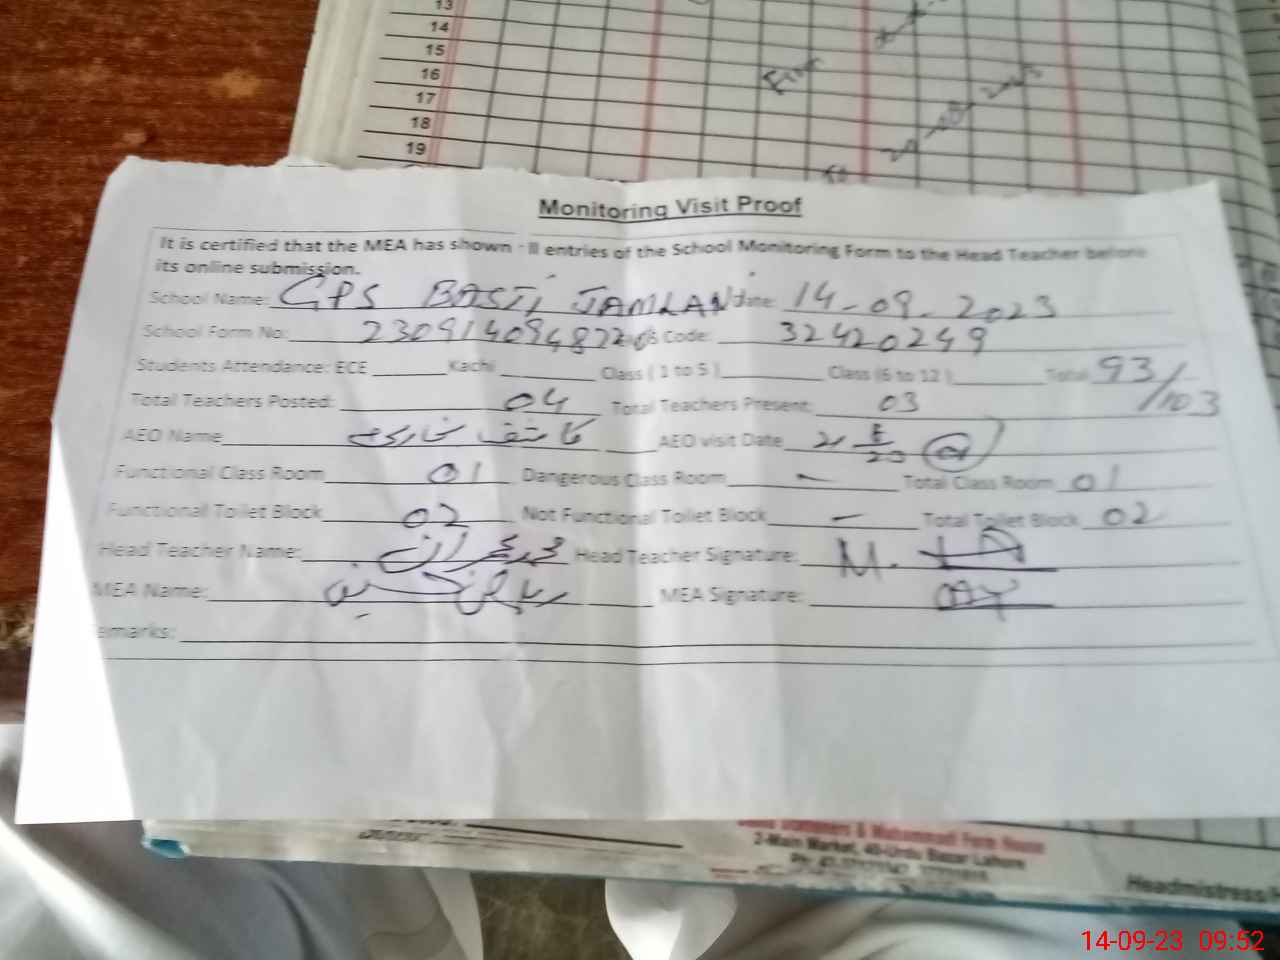 13
14
15
16
17
18
19
Monitoring Visit Proof
It is certified that the MEA has shown all entries of the School Monitoring Form to the Head Teacher before
its online submission.
School Name: GPS BASTI JAMLAN date: 14-09-2023
School Form No: 230914094872 Code: 32420249
Students Attendance: ECE Kachi Class (1 to 5) Class (6 to 12) Total 93/103
Total Teachers Posted: 04 Total Teachers Present: 03
AEO Name کاشف AEO visit Date
Functional Class Room 01 Dangerous Class Room - Total Class Room 01
Functional Toilet Block 02 Not Functional Toilet Block - Total Toilet Block 02
Head Teacher Name: محمد عمران Head Teacher Signature: M.
MEA Name: ریاض حسین MEA Signature:
emarks:
& Muhammadi Form House
2-Main Market, 40-Urdu Bazar Lahore
Headmistress
14-09-23 09:52